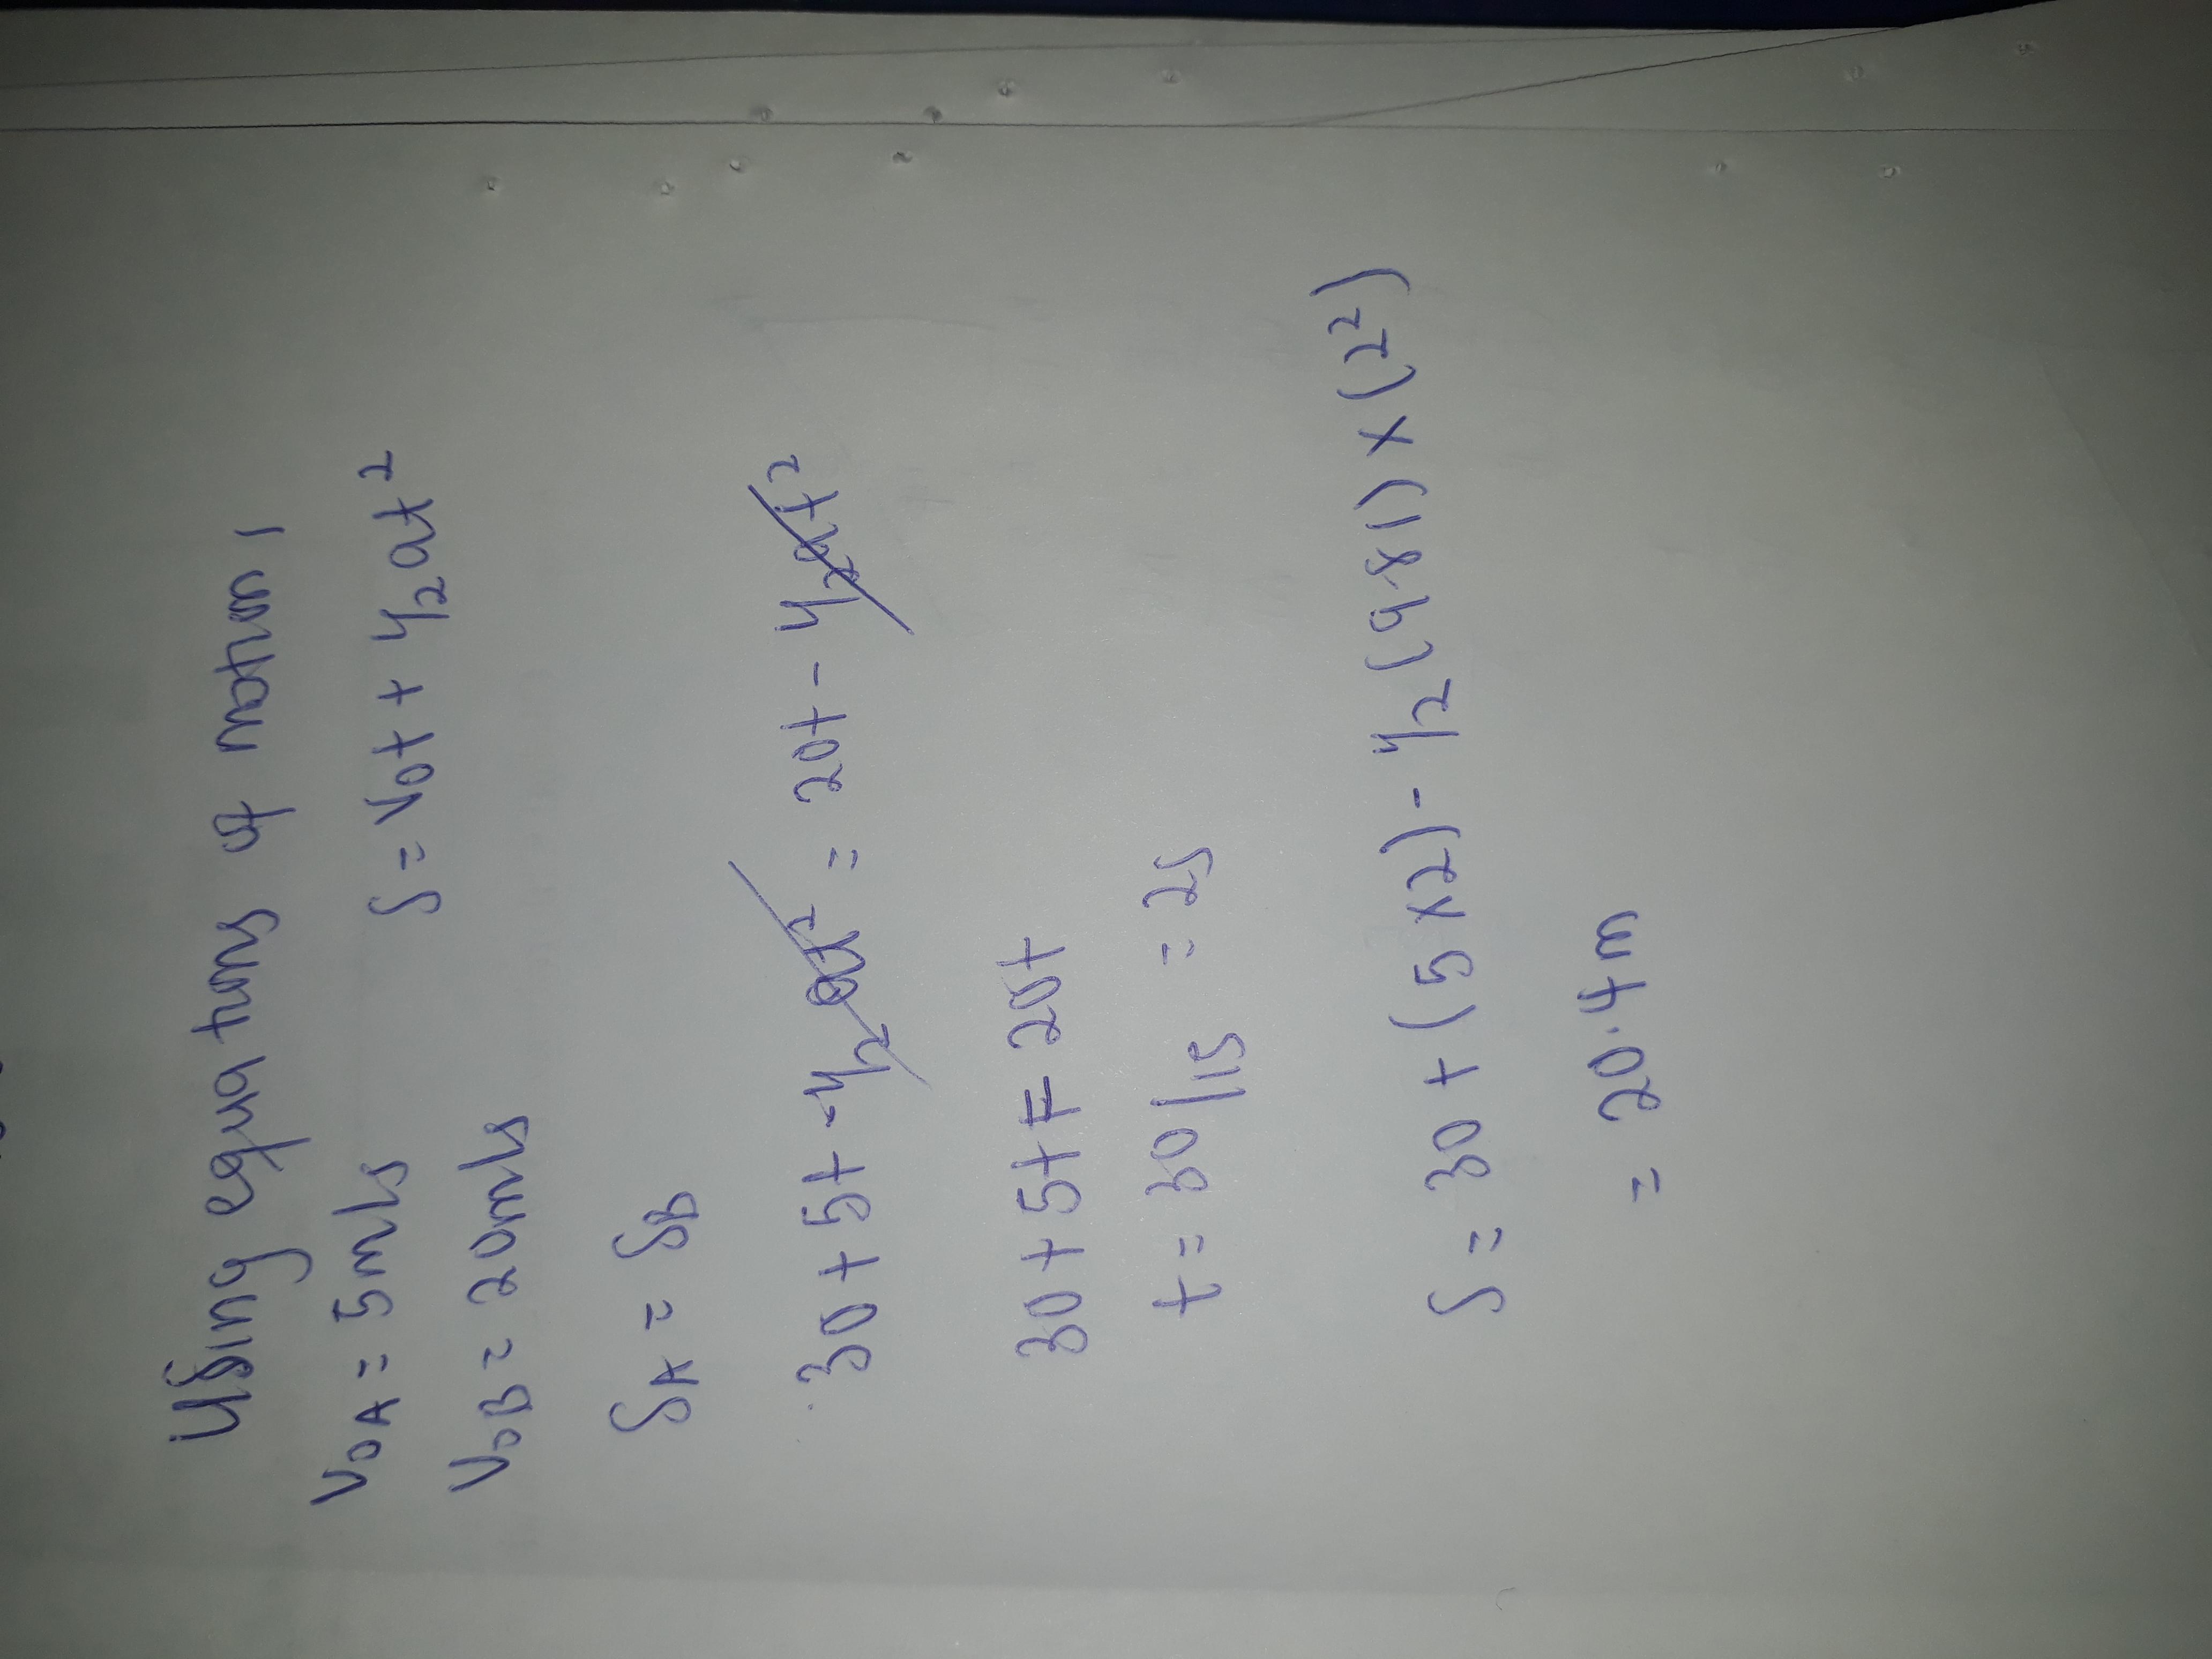 Using equations of motion,
V₀A = 5m/s S = V₀t + 1/2at²
V₀B = 20m/s
SA = SB
30 + 5t - 1/2at² = 20t - 1/2at²
30 + 5t = 20t
t = 30/15 = 2s
S = 30 + (5x2) - 1/2(9.81) x (2²)
= 20.4m